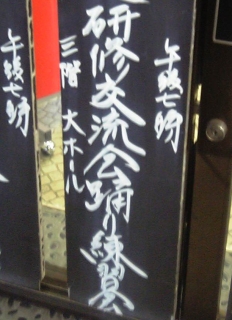 午後七時
研修交流会踊り練習会
三階 大ホール
午後七時